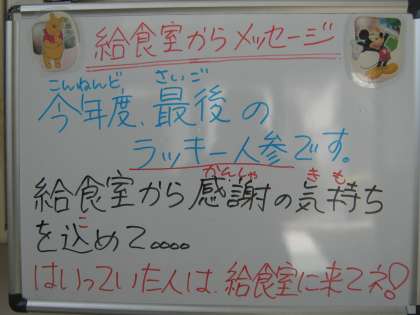 給食室からメッセージ
こんねんど さいご
今年度、最後の
ラッキー人参です。
かんしゃ きも
給食室から感謝の気持ち
こ
を込めて。。。。
はいっていた人は、給食室に来てネ!